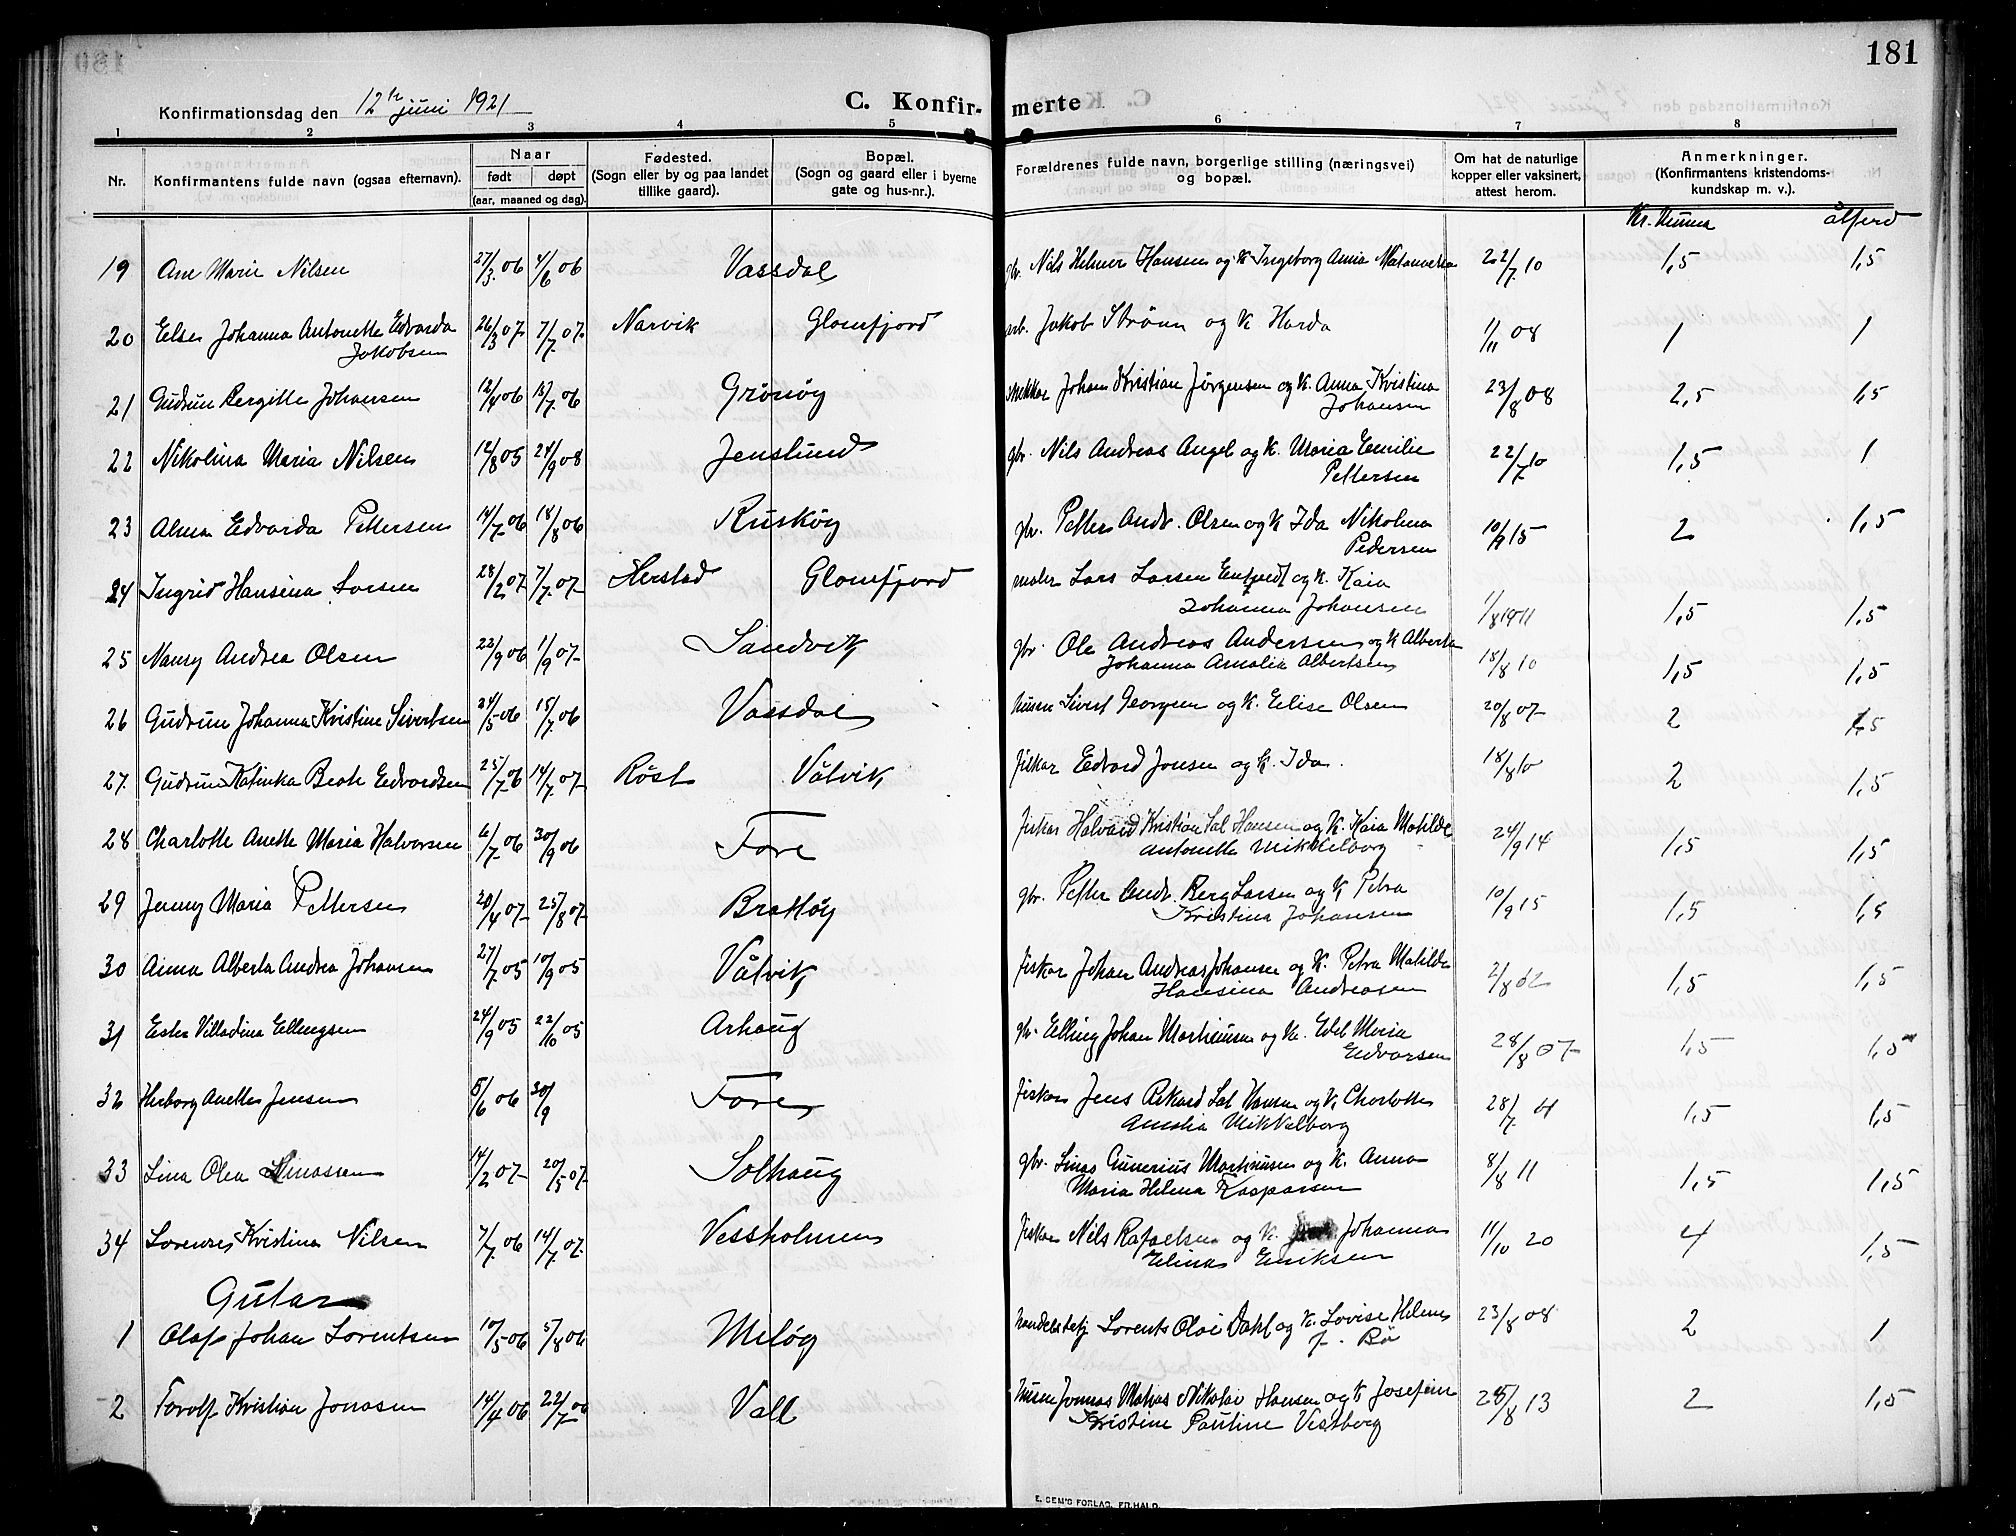 181
Konfirmationsdag den 12te juni 1921
C. Konfir- merte
1 2 3 4 5 6 7 8
Nr. Konfirmantens fulde navn (ogsaa efternavn). Naar født døpt (aar, maaned og dag). Fødested. (Sogn eller by og paa landet tillike gaard). Bopæl. (Sogn og gaard eller i byerne gate og hus-nr.). Forældrenes fulde navn, borgerlige stilling (næringsvei) og bopæl. Om hat de naturlige kopper eller vaksinert, attest herom. Anmerkninger. (Konfirmantens kristendoms- kundskap m. v.).
Kr. kunna åtferd
19 Ane Marie Nilsen 27/3 06 4/6 06 Vassdal gbr. Nils Helmer Hansen og k. Ingeborg Anna 22/7 10 1,5 1,5
20 Else Johanna Antonette Edvarda Jakobsen 26/3 07 7/7 07 Narvik Glomfjord arb. Jakob Strøm og k. Harda 1/11 08 1 1
21 Gudrun Bergitte Johansen 12/4 06 15/7 06 Grønøy Johan Kristian Jørgensen og k. Anna Kristina Johansen 23/8 08 2,5 1,5
22 Nikolina Maria Nilsen 12/8 05 24/9 08 Jenslund gbr. Nils Andreas Angel og k. Maria Emilie Pettersen 22/7 10 1,5 1
23 Alma Edvarda Pettersen 14/7 06 18/8 06 Ruskøy gbr. Petter Andr. Olsen og k. Ida Nikolina Pedersen 10/9 15 2 1,5
24 Ingrid Hansina Larsen 28/2 07 7/7 07 Herstad Glomfjord maler Lars Larsen og k. Kaia Johanna Johansen 1/8 1911 1,5 1,5
25 Nanny Andrea Olsen 22/9 06 1/9 07 Sandvik gbr. Ole Andreas Andersen og k. Alberta Johanna Amalie Albertsen 18/8 10 1,5 1,5
26 Gudrun Johanna Kristine Sivertsen 24/5 06 15/7 06 Vassdal Sivert Georgsen og k. Elise Olsen 20/8 07 2 1,5
27. Gudrun Katinka Beate Edvardsen 25/7 06 14/7 07 Røst Våtvik fiskar Edvard Jonsen og k. Ida. 18/8 10 2 1,5
28 Charlotte Anette Maria Halvorsen 6/7 06 30/9 06 Fore fiskar Halvard Kristian Sal Hansen og k. Kaia Matilde Antonette Mikkelborg 24/9 14 1,5 1,5
29 Jenny Maria Pettersen 20/4 07 25/8 07 Bratøy gbr. Petter Andr. Berg Larsen og k. Petra Kristina Johansen 10/9 15 1,5 1,5
30 Anna Alberta Andrea Johansen 27/7 05 10/9 05 Våtvik fiskar Johan Andreas Johansen og k. Petra Matilde Hansina Andreasen 2/8 1,5 1,5
31 Ester Villadina Ellingsen 24/9 05 22/10 05 Arhaug gbr. Elling Johan Martinusen og k. Edel Maria Edvarsen 28/8 07 1,5 1,5
32 Herborg Anette Jensen 5/6 06 30/9 Fore fiskar Jens Rikard Sal Hansen og k. Charlotte Amalia Mikkelborg 28/7 11 1,5 1,5
33 Lina Olea Linassen 14/2 07 20/5 07 Solhaug gbr. Linas Gunerius Martinusen og k. Anna Maria Helena Kasparsen 8/8 11 1,5 1,5
34 Lorense Kristina Nilsen 7/7 06 14/7 07. Vessholmen fiskar Nils Rafaelsen og k. Johanna Elina Eriksen 11/10 20 4 1,5
Gutar
1 Olaf Johan Lorentsen 10/5 06 5/8 06 Meløy handelsbetj Lorents Olai Dahl og k. Lovise Helene f. Bø 23/8 08 2 1
2 Torolf Kristian Jonasen 14/4 06 22/7 06 Vall Jonnas Matias Nikolai Hansen og k. Josefine Kristine Pauline Vestberg 25/8 13 2 1,5
E. SEM'S FORLAG, FR.HALD.